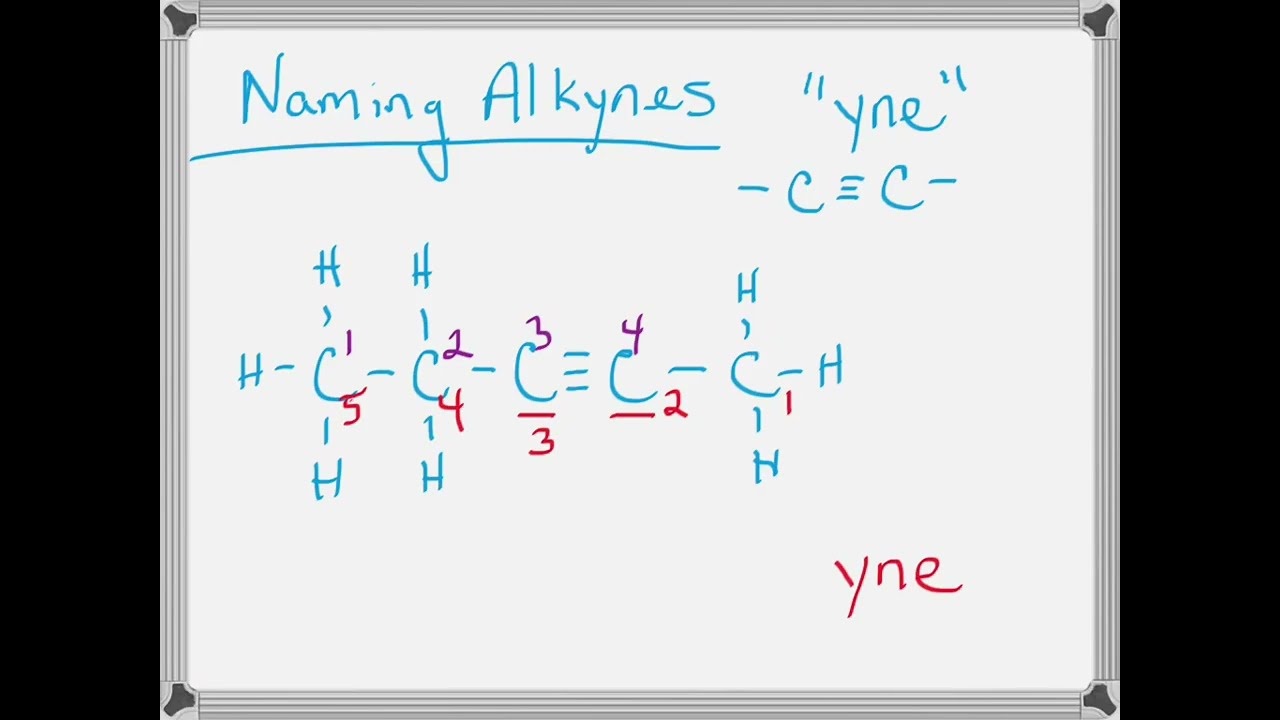 Naming Alkynes "yne"
- C ≡ C -
H H H
1 2 3 4
H - C - C - C ≡ C - C - H
5 4 2 1
3
H H H
yne